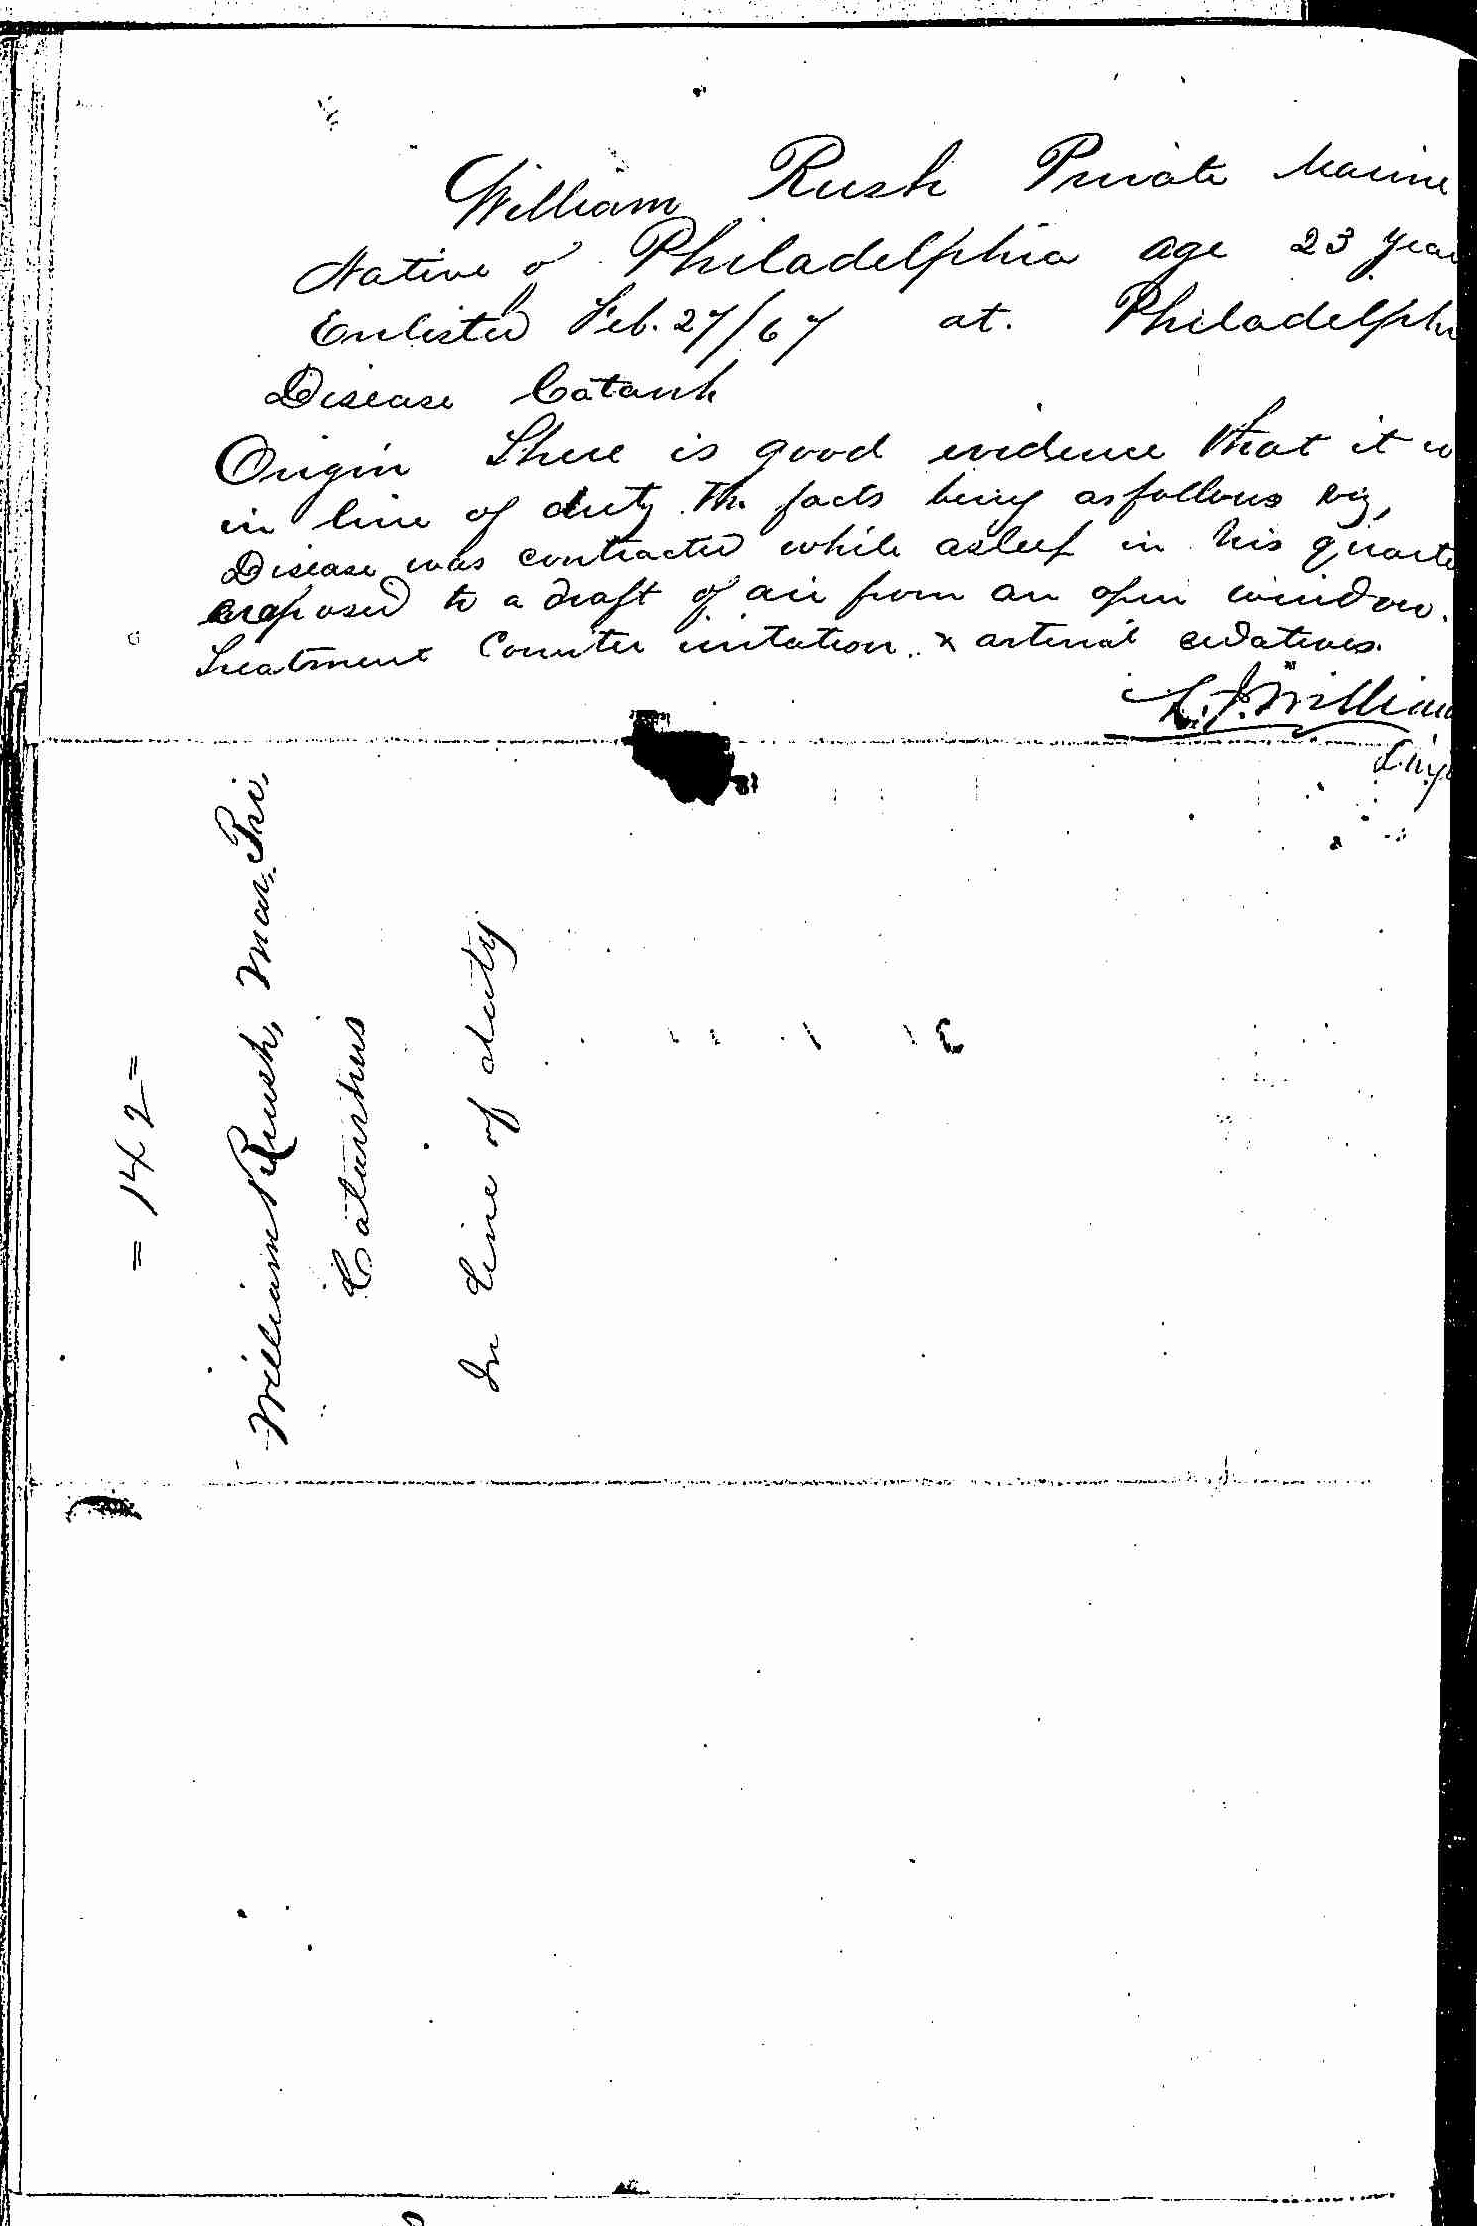 William Rush Private Marine
Native of Philadelphia age 23 year
Enlisted Feb. 27/67 at. Philadelphi
Disease Catarrh
Origin There is good evidence that it w
in line of duty. The facts being as follows viz,
Disease was contracted while asleep in his quarte
exposed to a draft of air from an open window.
Treatment Counter irritation. & arterial sedatives.
L. J. William
= 142 =
William Rush, Mar. Pri.
Catarrhus
In line of duty